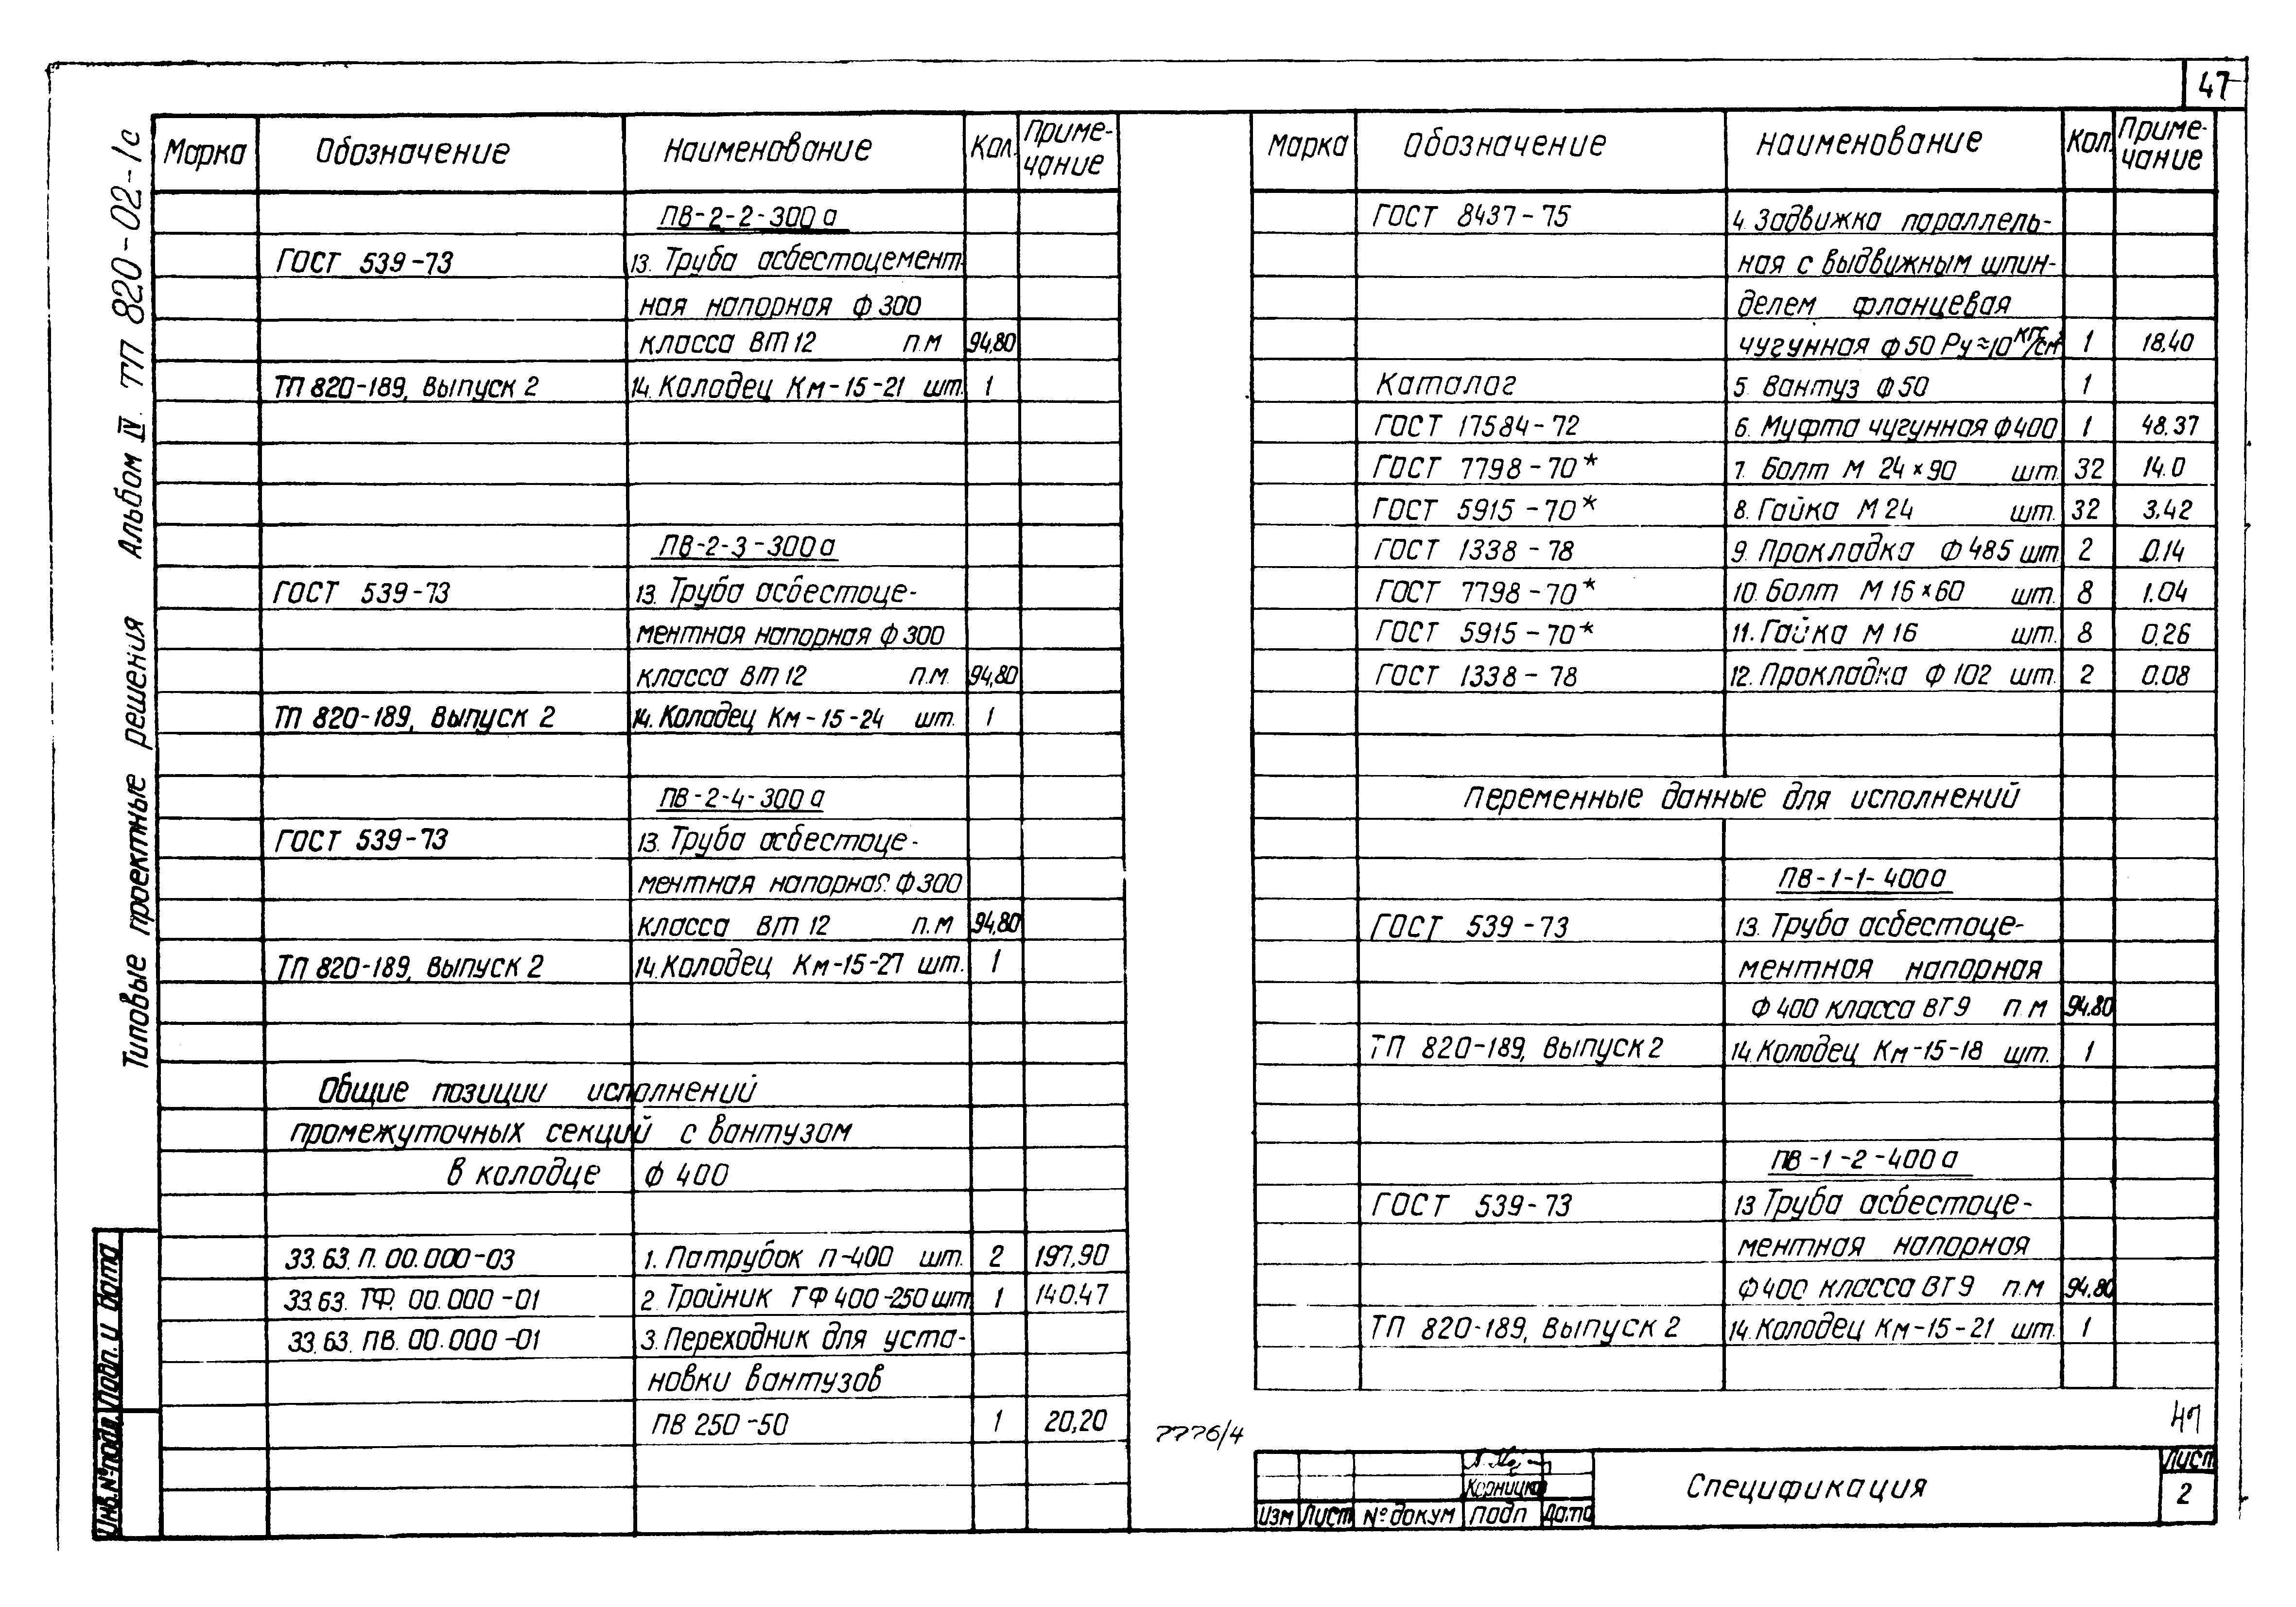 47
Типовые проектные решения Альбом IV. ТП 820-02-1с
Марка Обозначение Наименование Кол. Приме-
чание
ПВ-2-2-300а
ГОСТ 539-73 13. Труба асбестоцемент-
ная напорная ф300
класса ВТ12 п.м 94,80
ТП 820-189, Выпуск 2 14. Колодец Км-15-21 шт. 1
ПВ-2-3-300а
ГОСТ 539-73 13. Труба асбестоце-
ментная напорная ф300
класса ВТ12 п.м. 94,80
ТП 820-189, Выпуск 2 14. Колодец Км-15-24 шт. 1
ПВ-2-4-300а
ГОСТ 539-73 13. Труба асбестоце-
ментная напорная ф300
класса ВТ12 п.м 94,80
ТП 820-189, Выпуск 2 14. Колодец Км-15-27 шт. 1
Общие позиции исполнений
промежуточных секций с вантузом
в колодце ф 400
33.63.П.00.000-03 1. Патрубок П-400 шт. 2 197,90
33.63.ТФ.00.000-01 2. Тройник ТФ400-250 шт. 1 140.47
33.63.ПВ.00.000-01 3. Переходник для уста-
новки вантузов
ПВ 250-50 1 20,20
Марка Обозначение Наименование Кол. Приме-
чание
ГОСТ 8437-75 4. Задвижка параллель-
ная с выдвижным шпин-
делем фланцевая
чугунная ф50 Ру≈10 кгс/см² 1 18,40
Каталог 5. Вантуз ф50 1
ГОСТ 17584-72 6. Муфта чугунная ф400 1 48.37
ГОСТ 7798-70* 7. Болт М 24×90 шт. 32 14.0
ГОСТ 5915-70* 8. Гайка М24 шт. 32 3.42
ГОСТ 1338-78 9. Прокладка ф485 шт. 2 0.14
ГОСТ 7798-70* 10. Болт М16×60 шт. 8 1.04
ГОСТ 5915-70* 11. Гайка М16 шт. 8 0.26
ГОСТ 1338-78 12. Прокладка ф102 шт. 2 0.08
Переменные данные для исполнений
ПВ-1-1-400а
ГОСТ 539-73 13. Труба асбестоце-
ментная напорная
ф400 класса ВТ9 п.м 94.80
ТП 820-189, Выпуск 2 14. Колодец Км-15-18 шт. 1
ПВ-1-2-400а
ГОСТ 539-73 13 Труба асбестоце-
ментная напорная
ф400 класса ВТ9 п.м 94.80
ТП 820-189, Выпуск 2 14. Колодец Км-15-21 шт. 1
7776/4
47
Изм Лист № докум Подп Дата
Спецификация
Лист
2
Инв. № подл. Подп. и дата